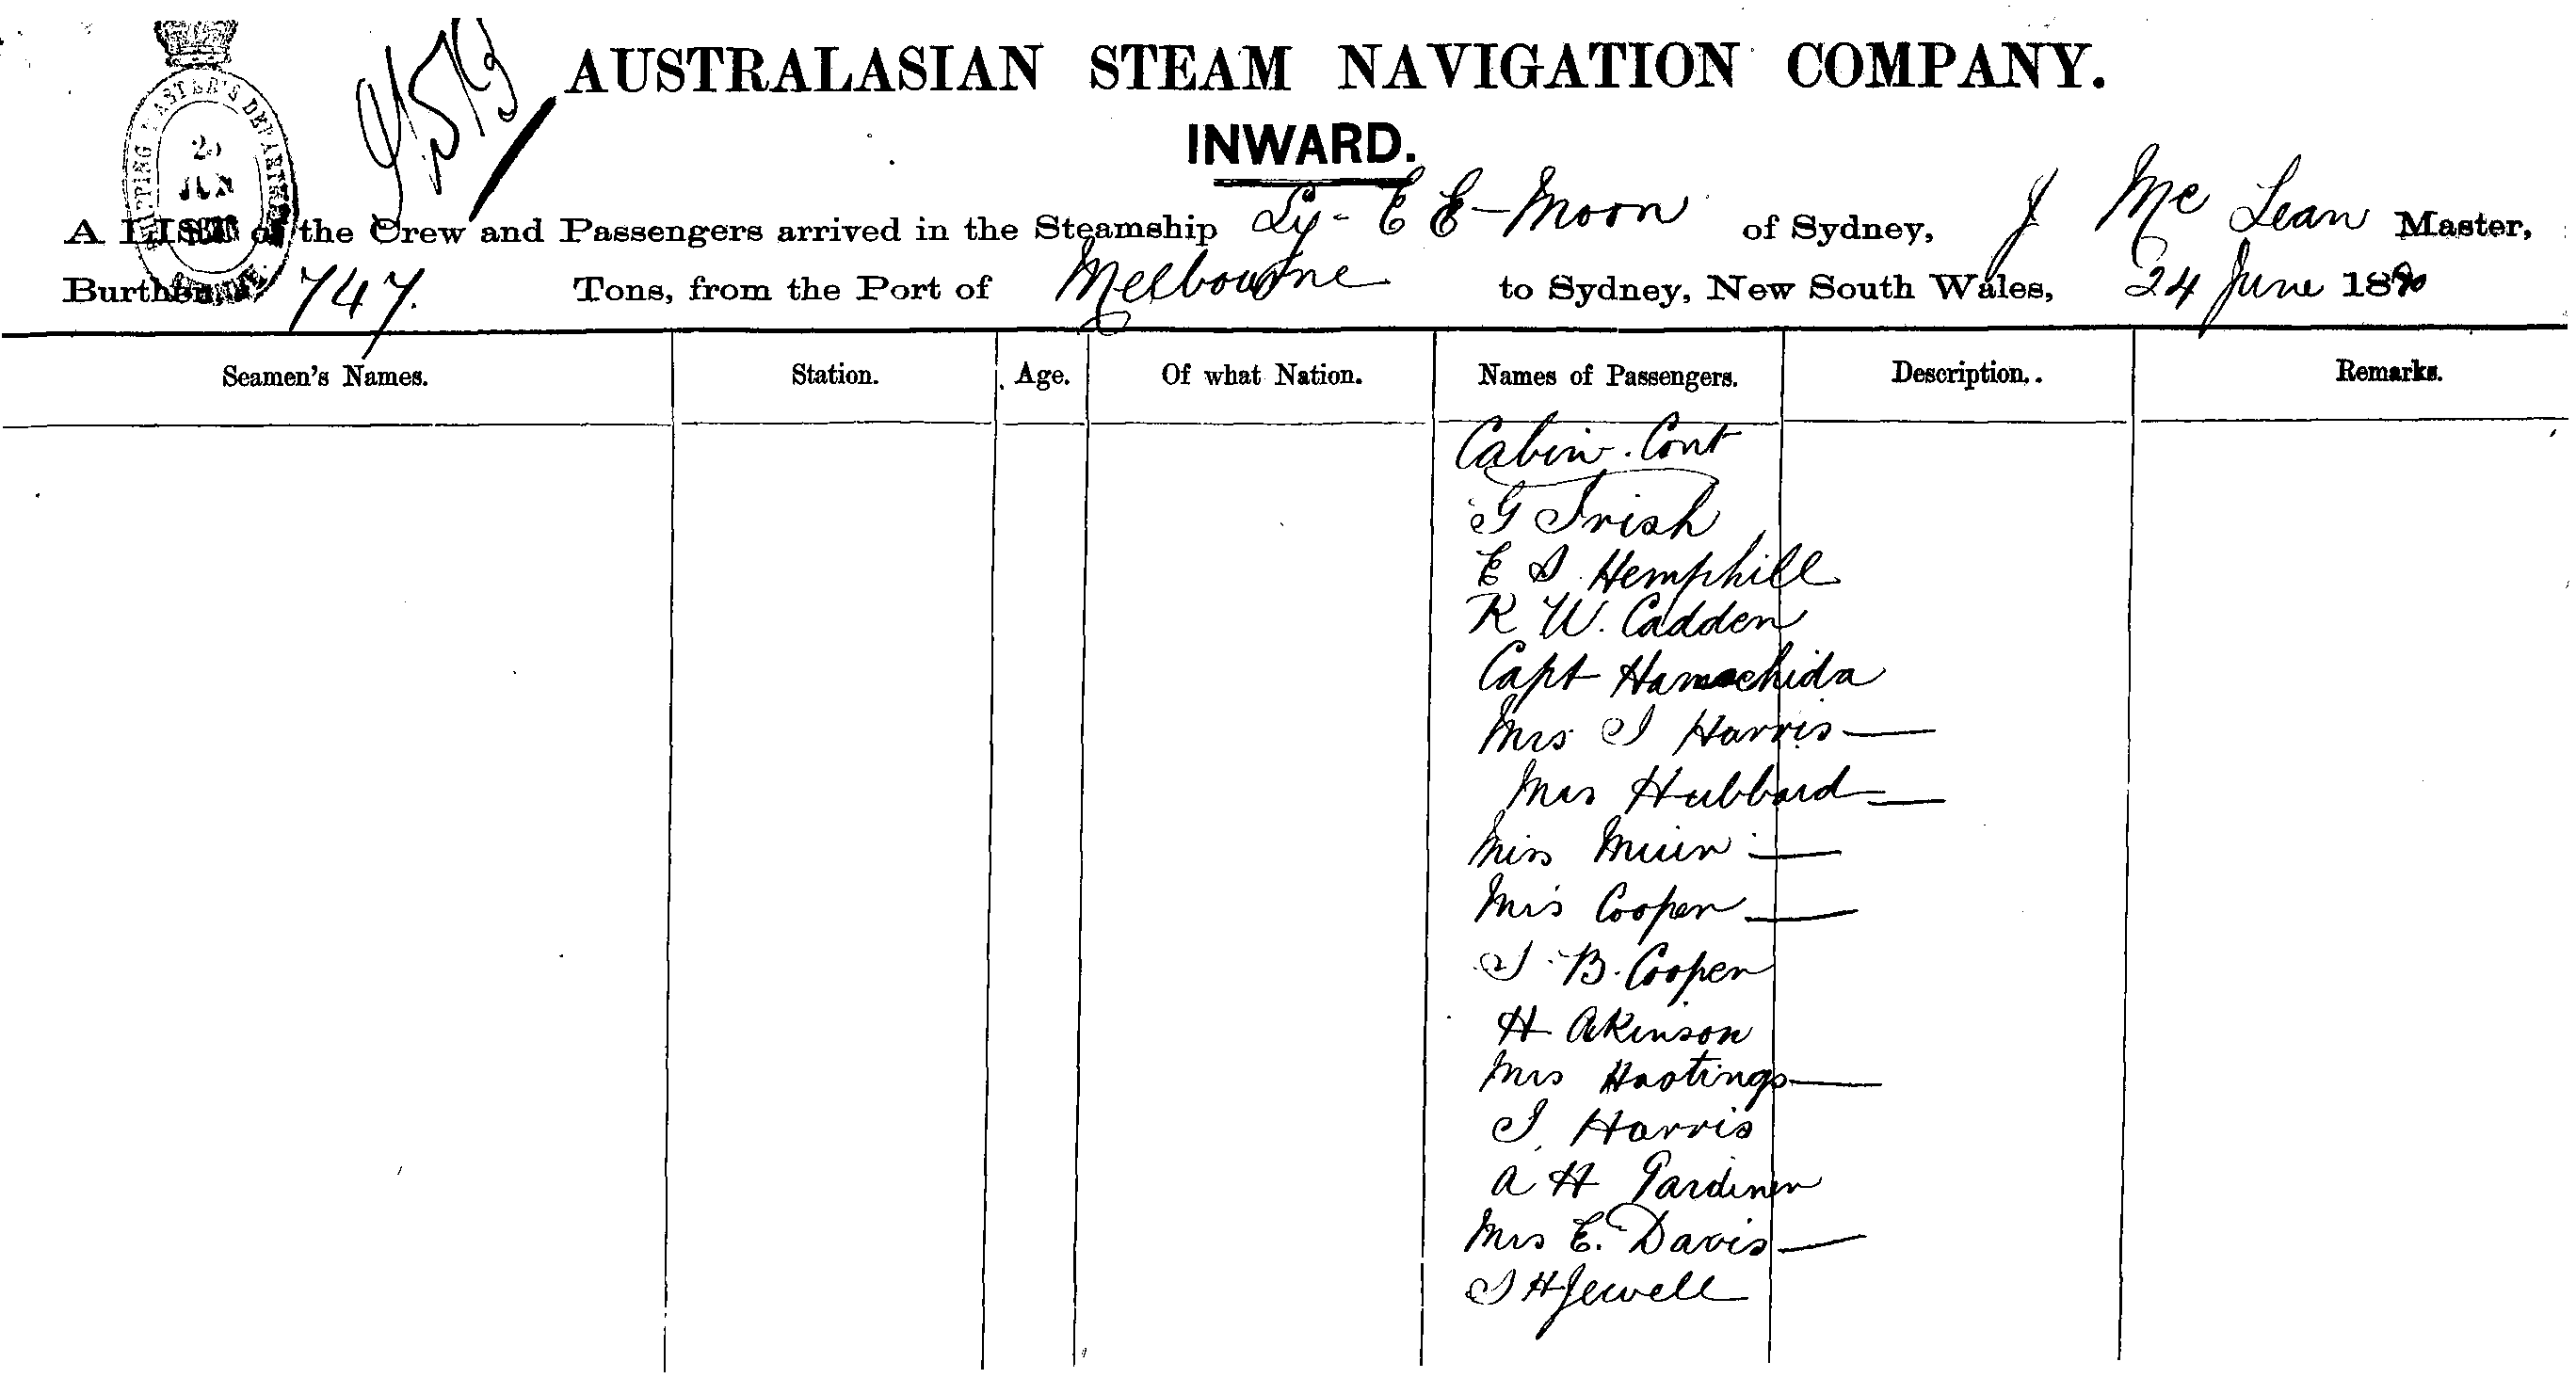 AUSTRALASIAN STEAM NAVIGATION COMPANY.
INWARD.
A LIST of the Crew and Passengers arrived in the Steamship Ly-EE-Moon of Sydney, J McLean Master,
Burthen 747. Tons, from the Port of Melbourne to Sydney, New South Wales, 24 June 1880
Seamen's Names. Station. Age. Of what Nation. Names of Passengers. Description. Remarks.
Cabin. Cont
G Irish
E S Hemphill
R W. Cadden
Capt Hamachida
Mrs I Harris
Mrs Hubbard
Miss Muir
Mrs Cooper
I B. Cooper
H Akinson
Mrs Hastings
I Harris
A H Gardiner
Mrs E. Davis
I H Jewell